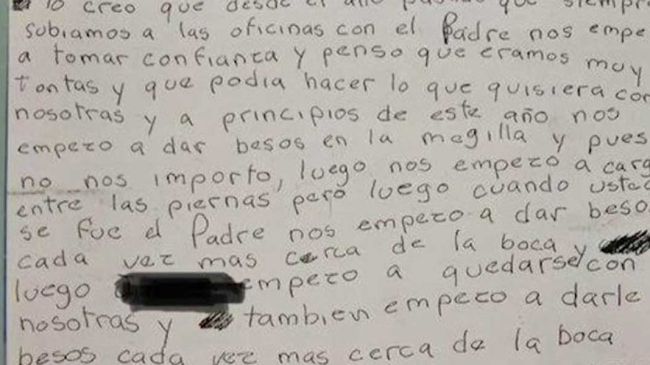 yo creo que desde el año pasado que siempre
subiamos a las oficinas con el Padre nos empe
a tomar confianza y penso que eramos muy
tontas y que podia hacer lo que quisiera con
nosotras y a principios de este año nos
empezo a dar besos en la megilla y pues
no nos importo, luego nos empezo a carg
entre las piernas pero luego cuando usted
se fue el Padre nos empezo a dar beso
cada vez mas cerca de la boca y
luego empezo a quedarse con
nosotras y tambien empezo a darle
besos cada vez mas cerca de la boca